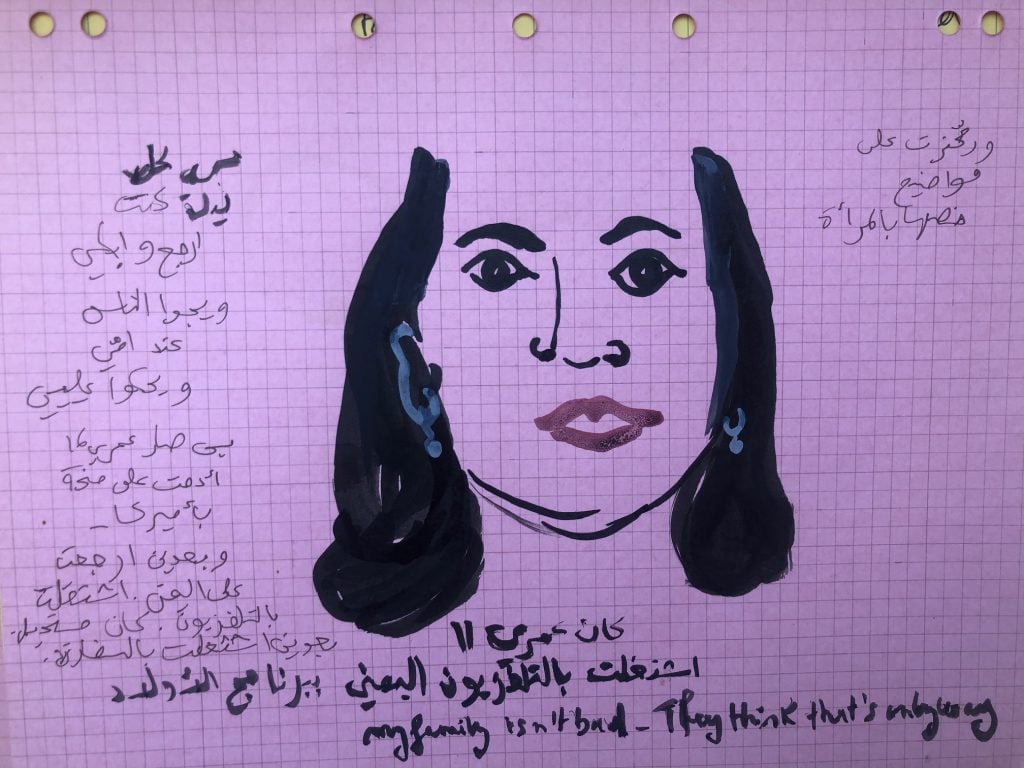 وركّزت على
مواضيع
خصها بالمرأة
بس كل
ليلة كنت
ارجع و ابكي
ويجوا الناس
عند امي
ويحكوا عليي
عمري 16
على منحة
بأميركا -
وبعدين ارجعت
على اليمن. اشتغلت
بالتلفزيون. كان مستحيل.
بعدين اشتغلت بالسفارة.
كان عمري 11
اشتغلت بالتلفزيون اليمني ببرنامج الأولاد
my family isn't bad - They think that's only way